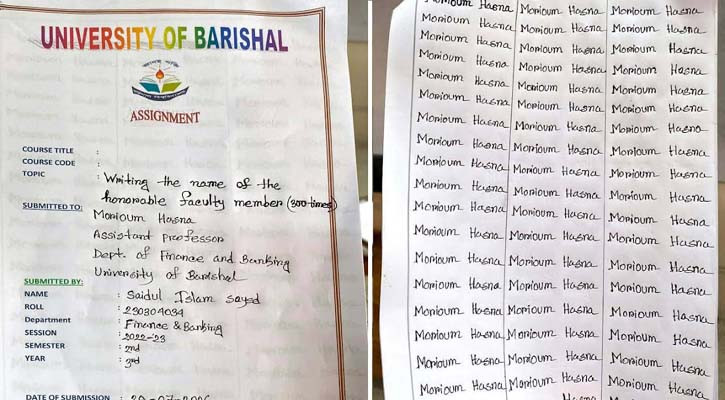 UNIVERSITY OF BARISHAL
ASSIGNMENT
COURSE TITLE :
COURSE CODE :
TOPIC : Writing the name of the
honorable faculty member (300 times)
SUBMITTED TO:
Morioum Hasna
Assistant Professor
Dept. of Finance and Banking
University of Barishal
SUBMITTED BY:
NAME : Saidul Islam sayed
ROLL : 230304034
Department : Finance & Banking
SESSION : 2022-23
SEMESTER : 2nd
YEAR : 3rd
DATE OF SUBMISSION :
Morioum Hasna Morioum Hasna Morioum Hasna
Morioum Hasna Morioum Hasna Morioum Hasna
Morioum Hasna Morioum Hasna Morioum Hasna
Morioum Hasna Morioum Hasna Morioum Hasna
Morioum Hasna Morioum Hasna Morioum Hasna
Morioum Hasna Morioum Hasna Morioum Hasna
Morioum Hasna Morioum Hasna Morioum Hasna
Morioum Hasna Morioum Hasna Morioum Hasna
Morioum Hasna Morioum Hasna Morioum Hasna
Morioum Hasna Morioum Hasna Morioum Hasna
Morioum Hasna Morioum Hasna Morioum Hasna
Morioum Hasna Morioum Hasna Morioum Hasna
Morioum Hasna Morioum Hasna Morioum Hasna
Morioum Hasna Morioum Hasna Morioum Hasna
Morioum Hasna Morioum Hasna Morioum Hasna
Morioum Hasna Morioum Hasna Morioum Hasna
Morioum Hasna Morioum Hasna Morioum Hasna
Morioum Hasna Morioum Hasna Morioum Hasna
Hasna